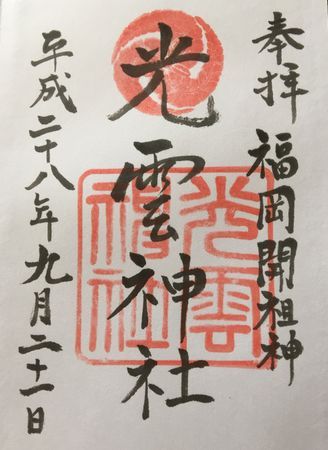 奉拝
福岡開祖神
光雲神社
光雲
神社
平成二十八年九月二十一日